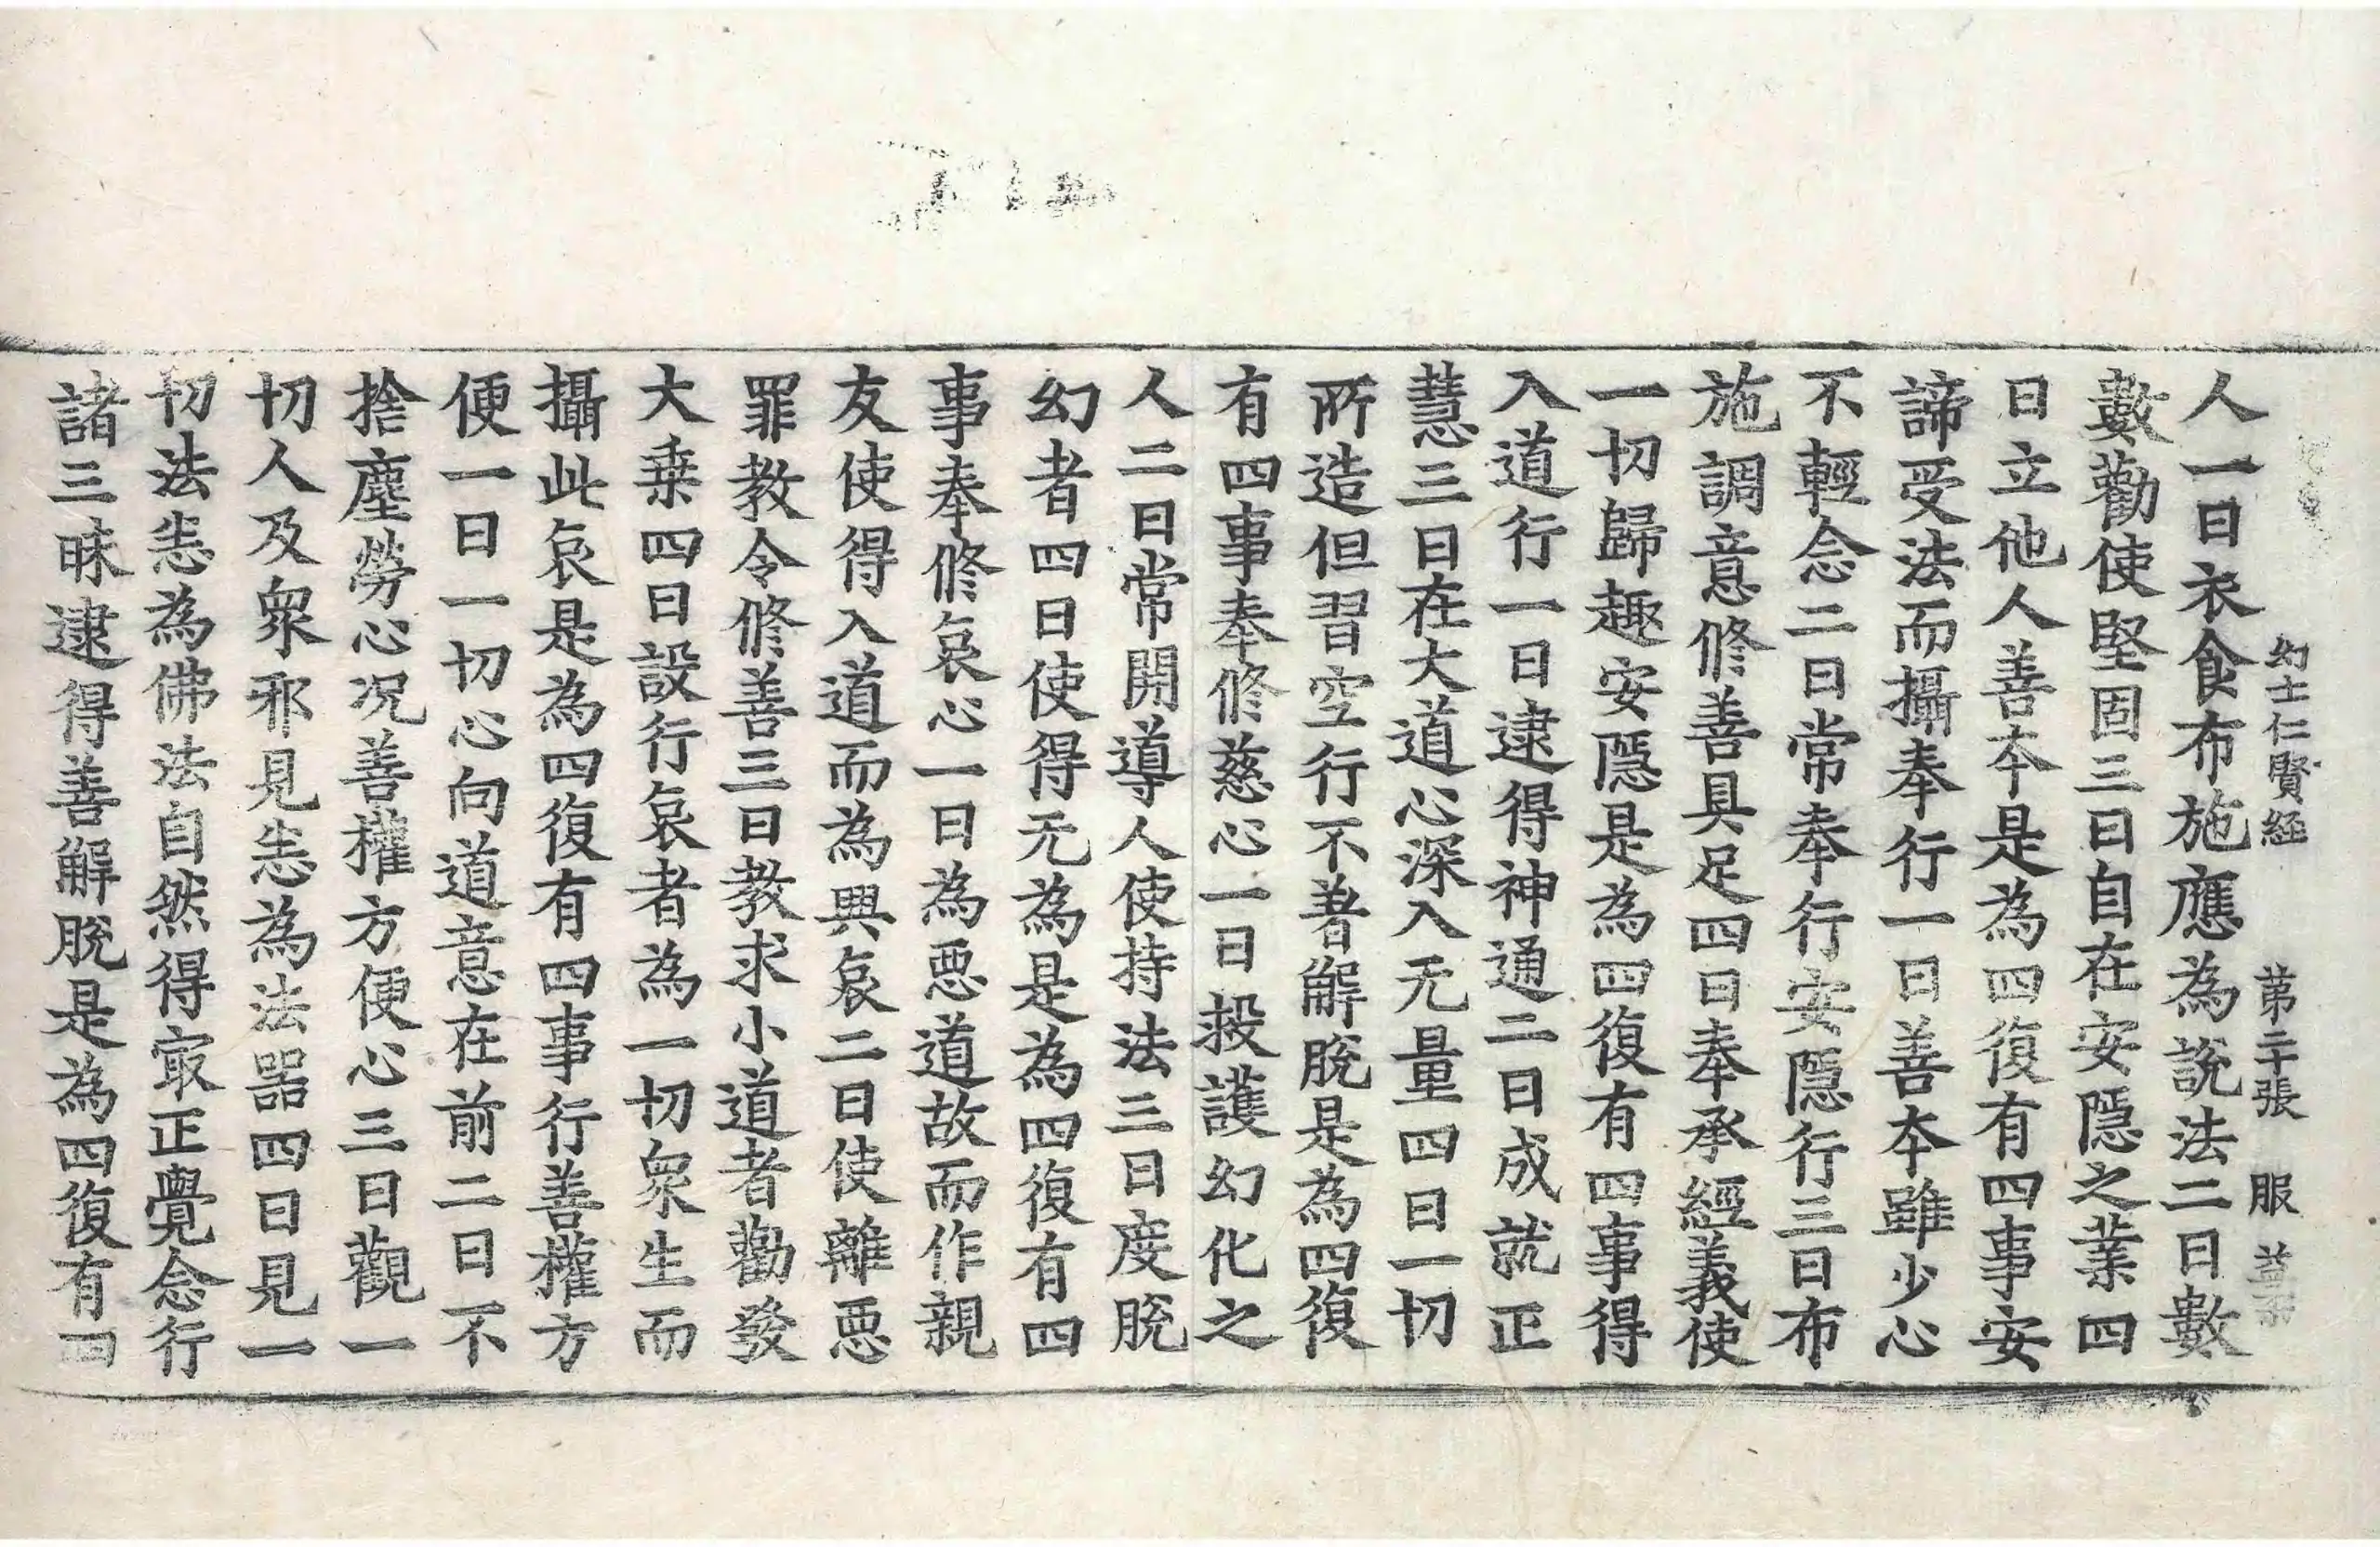 幻士仁賢経 第二十張 服
人一曰衣食布施應為說法二曰數
數勸使堅固三曰自在安隱之業四
曰立他人善夲是為四復有四事安
諦受法而攝奉行一曰善夲雖少心
不輕念二曰常奉行安隱行三曰布
施調意修善具足四曰奉承經義使
一切歸趣安隱是為四復有四事得
入道行一曰逮得神通二曰成就正
慧三曰在大道心深入无量四曰一切
所造但習空行不著解脫是為四復
有四事奉修慈心一曰救護幻化之
人二曰常開導人使持法三曰度脫
幻者四曰使得无為是為四復有四
事奉修哀心一曰為惡道故而作親
友使得入道而為興哀二曰使離惡
罪教令修善三曰教求小道者勸發
大乗四曰設行哀者為一切衆生而
攝此哀是為四復有四事行善權方
便一曰一切心向道意在前二曰不
捨塵勞心况善權方便心三曰觀一
切人及衆邪見恚為法器四曰見一
切法恚為佛法自然得㝡正覺念行
諸三昧逮得善解脫是為四復有四